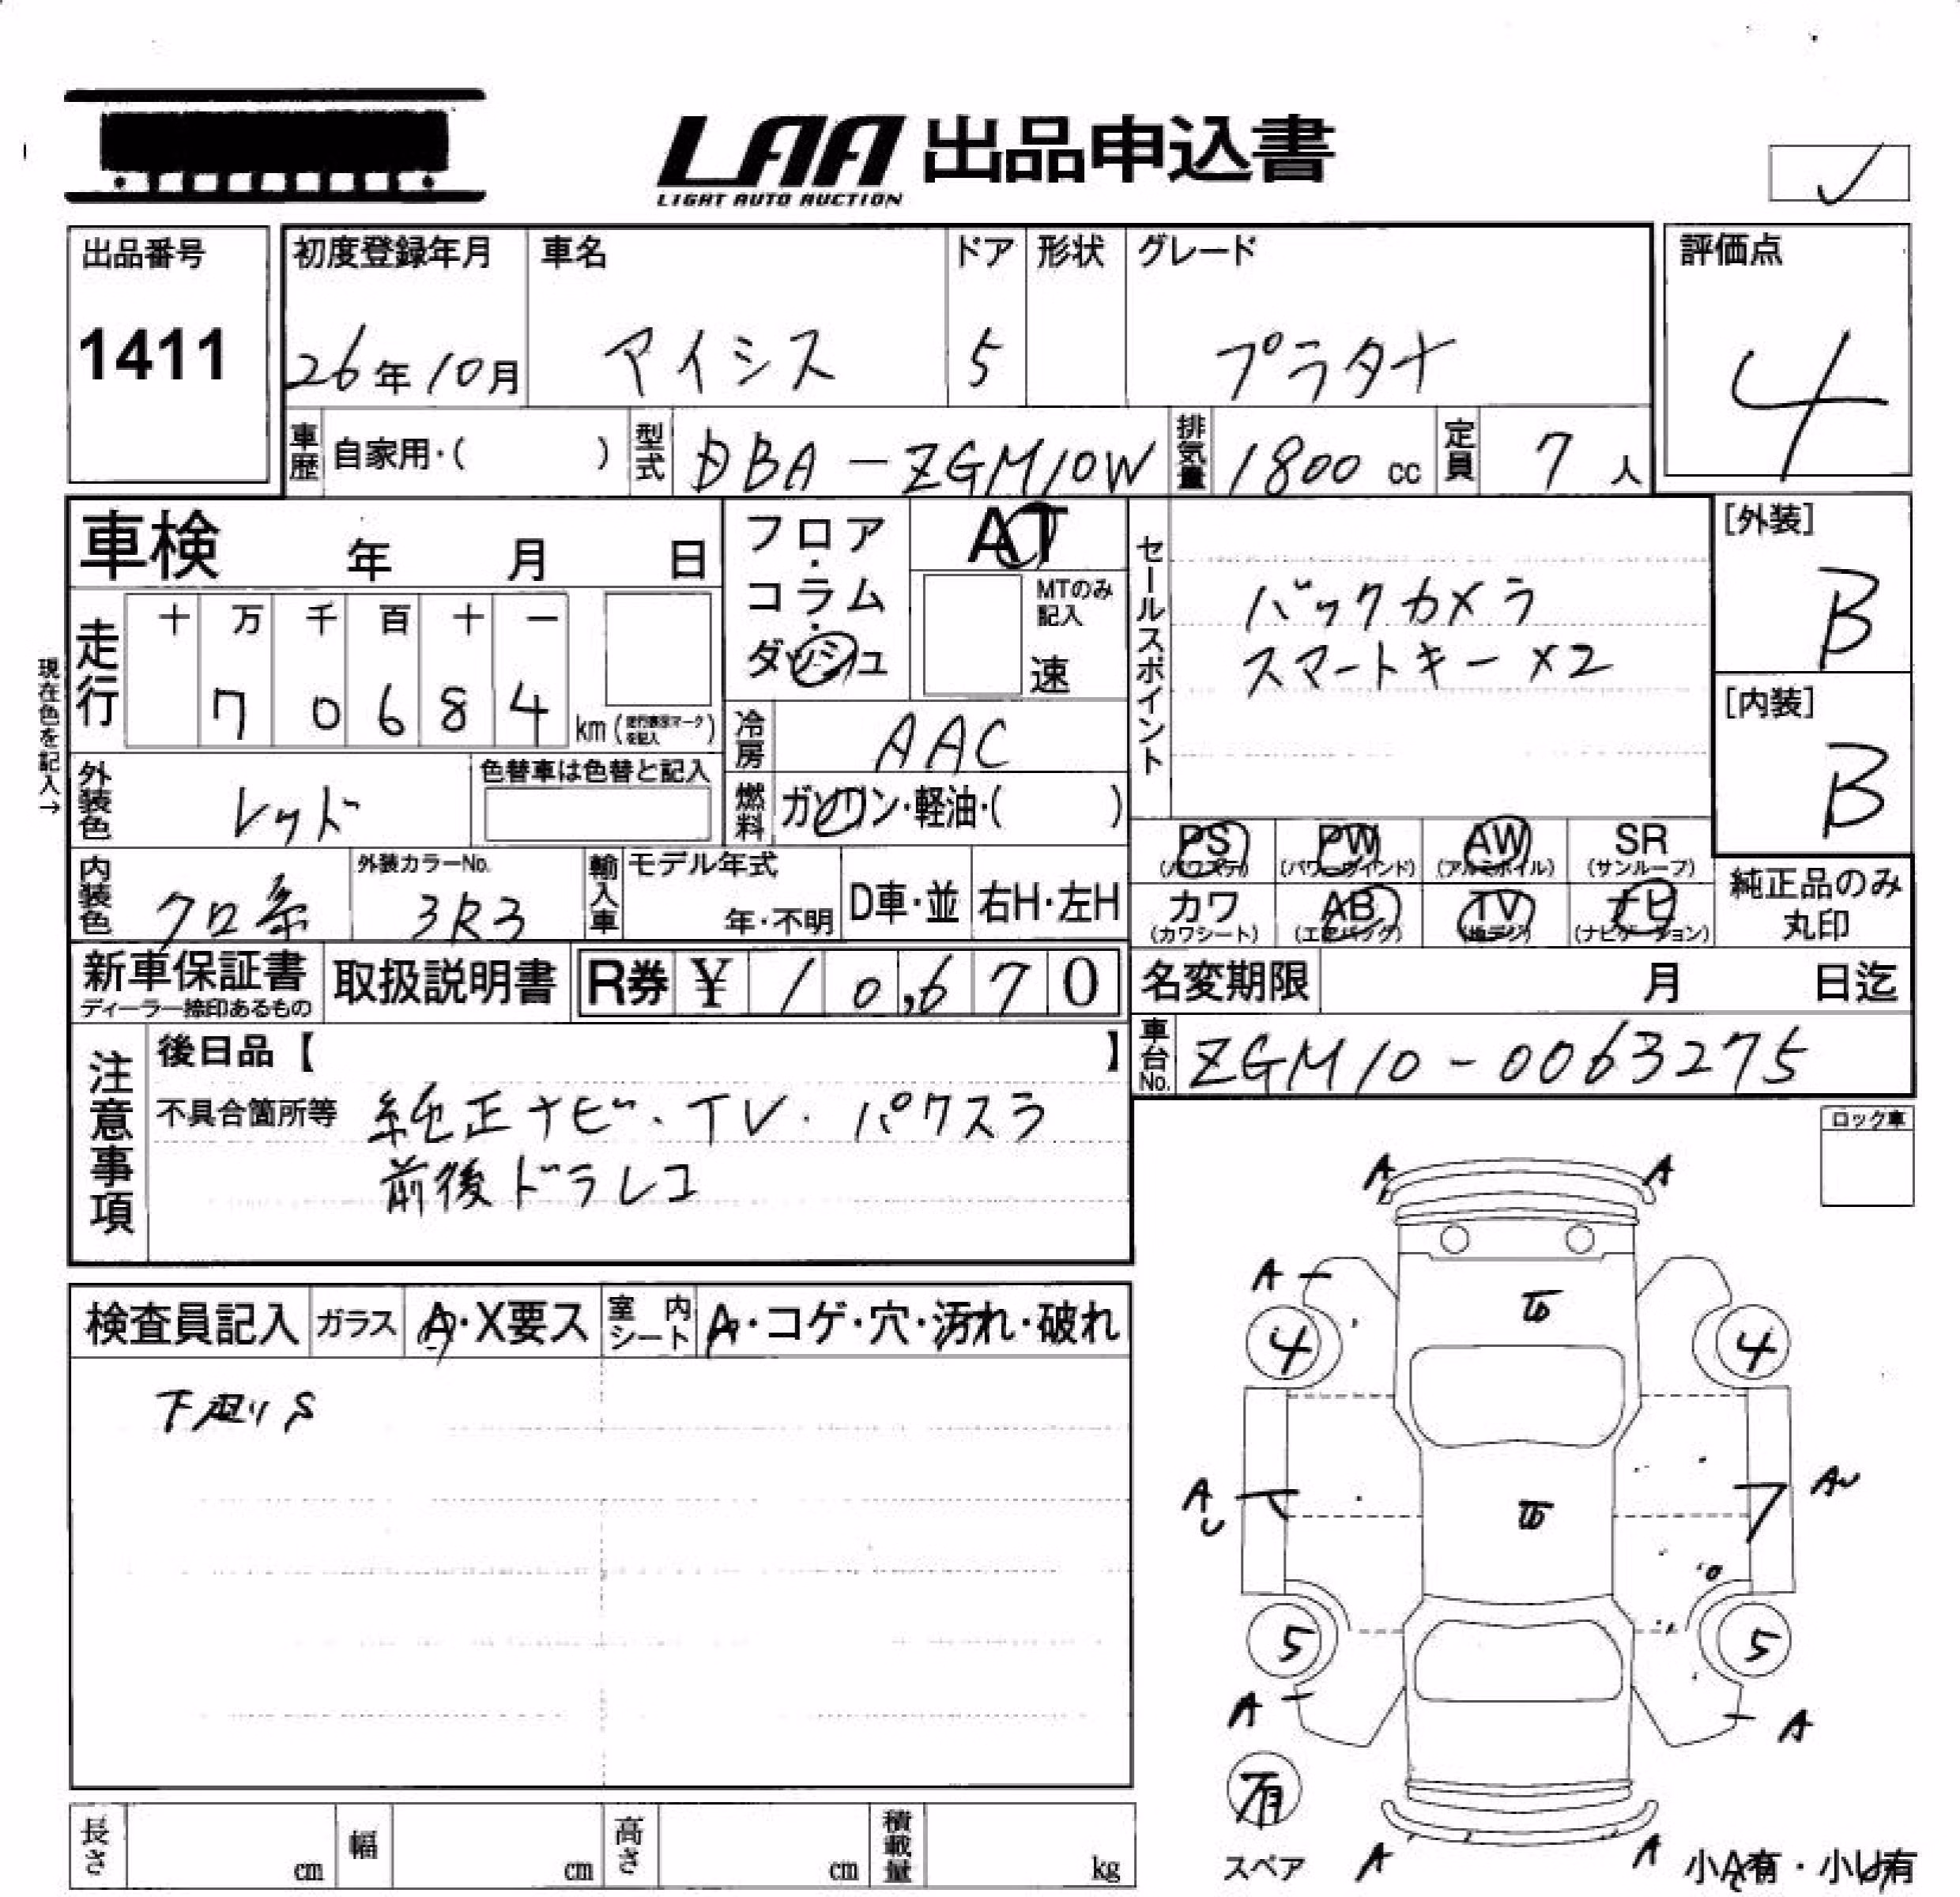 LAA 出品申込書
LIGHT AUTO AUCTION
出品番号
1411
初度登録年月
26年10月
車名
アイシス
ドア
5
形状
グレード
プラタナ
評価点
4
車歴 自家用・( )
型式 DBA-ZGM10W
排気量 1800 cc
定員 7 人
車検 年 月 日
フロア・コラム・ダッシュ
AT
MTのみ記入
速
セールスポイント
バックカメラ
スマートキー×2
[外装]
B
[内装]
B
現在色を記入→
走行
十 万 千 百 十 一
7 0 6 8 4 km (走行表示マークを記入)
冷房 AAC
外装色 レッド
色替車は色替と記入
燃料 ガソリン・軽油・( )
PS (パワステ)
PW (パワーウインド)
AW (アルミホイル)
SR (サンルーフ)
カワ (カワシート)
AB (エアバック)
TV (地デジ)
ナビ (ナビゲーション)
純正品のみ
丸印
内装色 クロ系
外装カラーNo.
3R3
輸入車
モデル年式
年・不明
D車・並
右H・左H
新車保証書
ディーラー捺印あるもの
取扱説明書
R券 ¥ 10,670
名変期限 月 日迄
車台No. ZGM10-0063275
注意事項
後日品【 】
不具合箇所等 純正ナビ・TV・パワスラ
前後ドラレコ
ロック車
検査員記入
ガラス A・X要ス
室内シート A・コゲ・穴・汚れ・破れ
下廻りS
A A
A
4 4
A U AU
5 5
A A
有
スペア
A A
小A有・小U有
長さ cm
幅 cm
高さ cm
積載量 kg